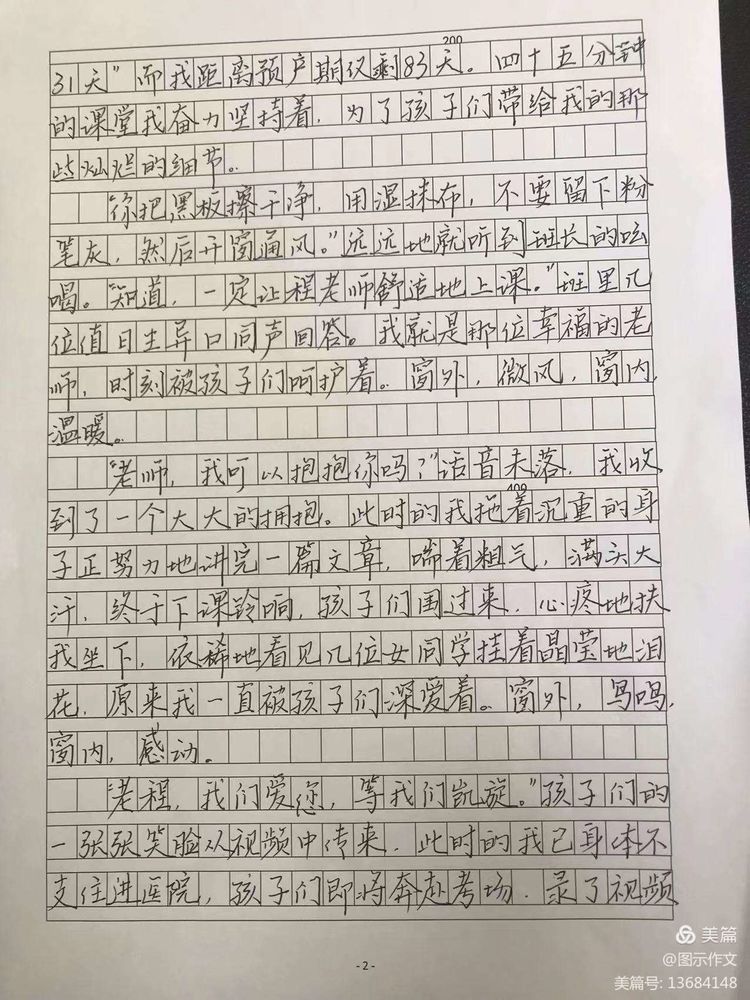 200
31天”而我距离预产期仅剩83天。四十五分钟
的课堂我奋力坚持着，为了孩子们带给我的那
些灿烂的细节。
“你把黑板擦干净，用湿抹布，不要留下粉
笔灰，然后开窗通风。”远远地就听到班长的吆
喝。“知道，一定让程老师舒适地上课。”班里几
位值日生异口同声回答。我就是那位幸福的老
师，时刻被孩子们呵护着。窗外，微风，窗内，
温暖。
“老师，我可以抱抱你吗？”话音未落，我收
400
到了一个大大的拥抱。此时的我拖着沉重的身
子正努力地讲完一篇文章，喘着粗气，满头大
汗，终于下课铃响，孩子们围过来，心疼地扶
我坐下，依稀地看见几位女同学挂着晶莹地泪
花，原来我一直被孩子们深爱着。窗外，鸟鸣，
窗内，感动。
“老程，我们爱您，等我们凯旋。”孩子们的
一张张笑脸从视频中传来，此时的我已身体不
支住进医院，孩子们即将奔赴考场，录了视频
- 2 -
美篇
@图示作文
美篇号: 13684148